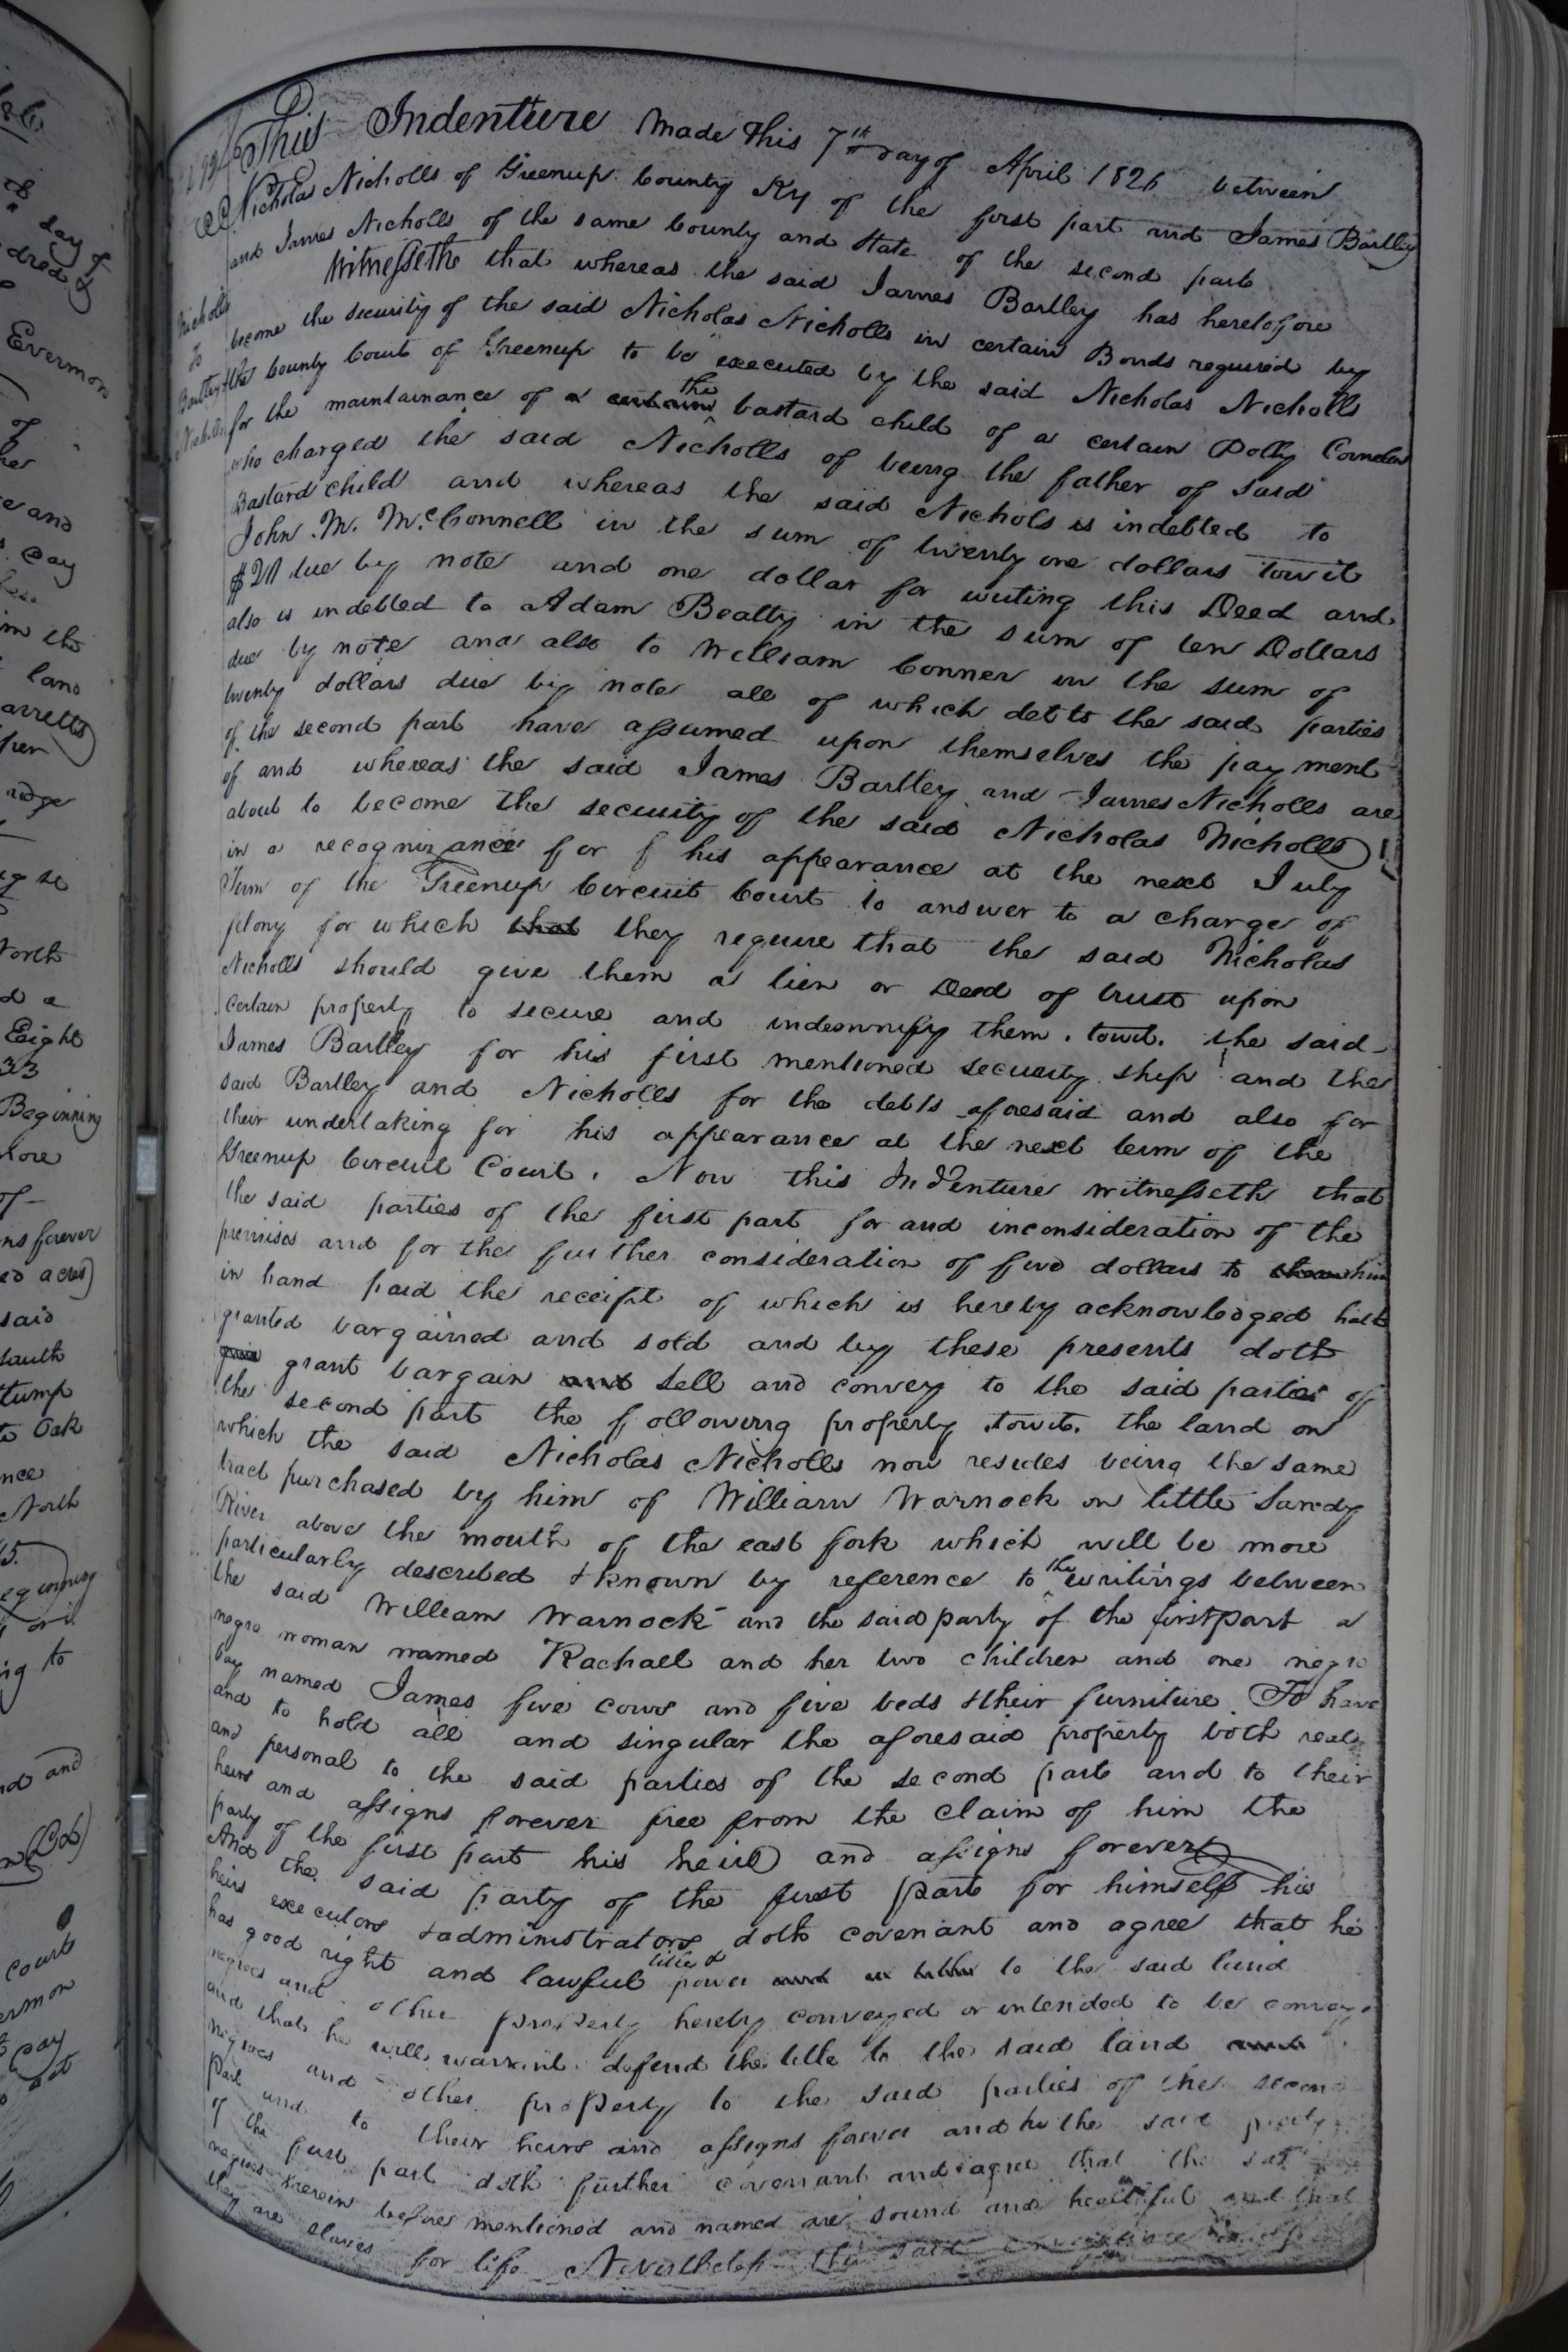 This Indenture Made this 7th day of April 1826 between
Nicholas Nicholls of Greenup County Ky of the first part and James Bartley
and James Nicholls of the same County and State of the second part
Witnesseth that whereas the said James Bartley has heretofore
become the security of the said Nicholas Nicholls in certain Bonds required by
the County Court of Greenup to be executed by the said Nicholas Nicholls
for the maintainance of a certain the bastard child of a certain Polly
who charged the said Nicholls of being the father of said
Bastard child and whereas the said Nichols is indebted to
John M. McConnell in the sum of twenty one dollars towit
$20 due by note and one dollar for writing this Deed and
also is indebted to Adam Beatty in the sum of ten Dollars
due by note and also to William Conner in the sum of
twenty dollars due by note all of which debts the said parties
of the second part have assumed upon themselves the payment
of and whereas the said James Bartley and James Nicholls are
about to become the security of the said Nicholas Nicholls
in a recognizance for his appearance at the next July
Term of the Greenup Circuit Court to answer to a charge of
felony for which that they require that the said Nicholas
Nicholls should give them a lien or Deed of trust upon
certain property to secure and indemnify them . towit . the said
James Bartley for his first mentioned security ship and the
said Bartley and Nicholls for the debts aforesaid and also for
their undertaking for his appearance at the next term of the
Greenup Circuit Court . Now this Indenture witnesseth that
the said parties of the first part for and inconsideration of the
premises and for the further consideration of five dollars to them him
in hand paid the receipt of which is hereby acknowledged hath
granted bargained and sold and by these presents doth
grant bargain and sell and convey to the said parties of
the second part the following property . towit . the land on
which the said Nicholas Nicholls now resides being the same
tract purchased by him of William Warnock on little Sandy
River above the mouth of the east fork which will be more
particularly described & known by reference to the writings between
the said William Warnock and the said party of the first part a
negro woman named Rachael and her two children and one negro
boy named James five cows and five beds & their furniture To have
and to hold all and singular the aforesaid property both real
and personal to the said parties of the second part and to their
heirs and assigns forever free from the claim of him the
party of the first part his heirs and assigns forever
And the said party of the first part for himself his
heirs executors & administrators doth covenant and agree that he
has good right and lawful title & power and to the said land
negroes and other property hereby conveyed or intended to be
and that he will warrant defend the title to the said land and
negroes and other property to the said parties of the second
part and to their heirs and assigns forever and he the said party
of the first part doth further covenant and agree that the
negroes herein before mentioned and named are sound and healthful and that
they are slaves for life Nevertheless the said
Nicholls
To
Bartley &
Nicholls